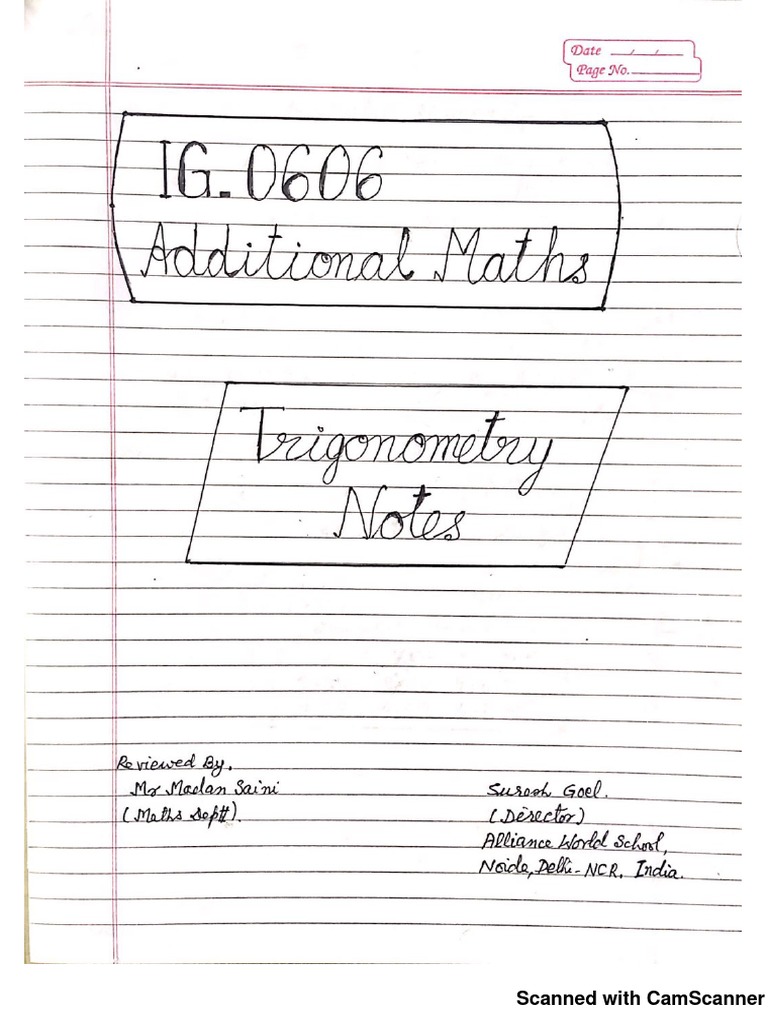 Date __/__/__
Page No.______
IG-0606
Additional Maths
Trigonometry
Notes
Reviewed By,
Mr Madan Saini
(Maths Deptt).
Suresh Goel.
(Director)
Alliance World School,
Noida, Delhi-NCR, India.
Scanned with CamScanner